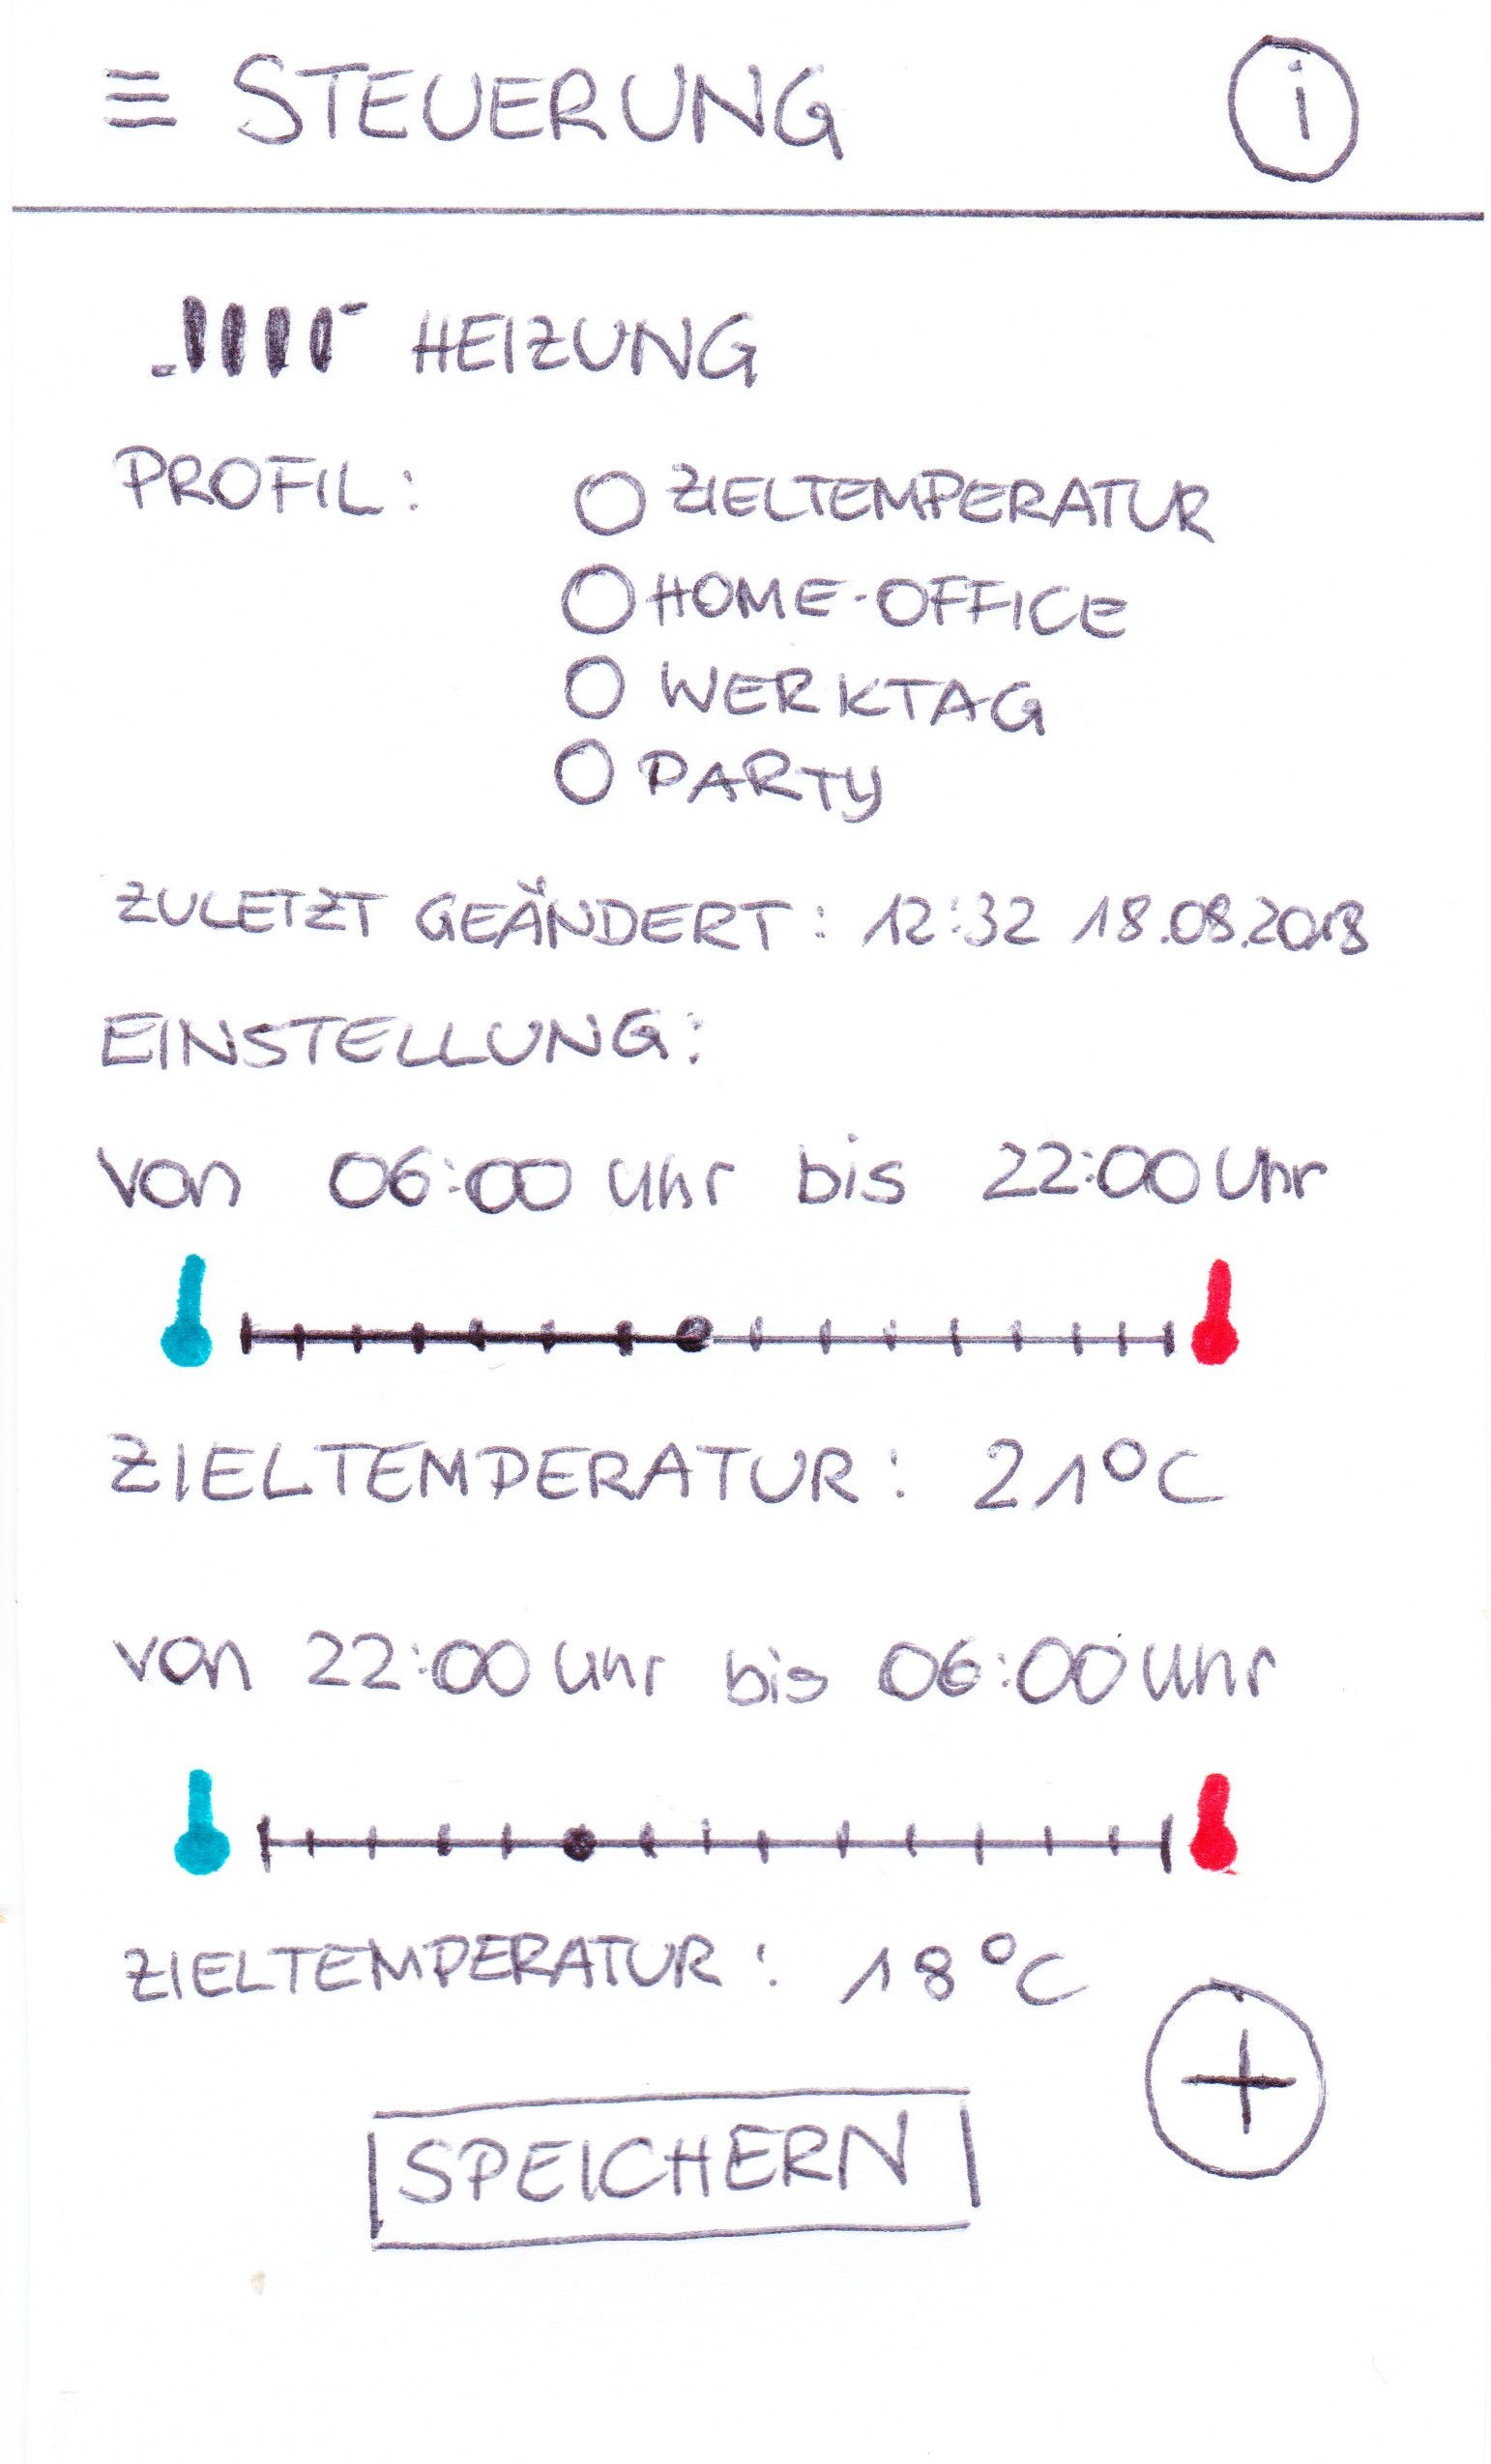 STEUERUNG i
HEIZUNG
PROFIL: ZIELTEMPERATUR
HOME-OFFICE
WERKTAG
PARTY
ZULETZT GEÄNDERT: 12:32 18.08.2018
EINSTELLUNG:
von 06:00 Uhr bis 22:00 Uhr
ZIELTEMPERATUR: 21°C
von 22:00 Uhr bis 06:00 Uhr
ZIELTEMPERATUR: 18°C
+
SPEICHERN